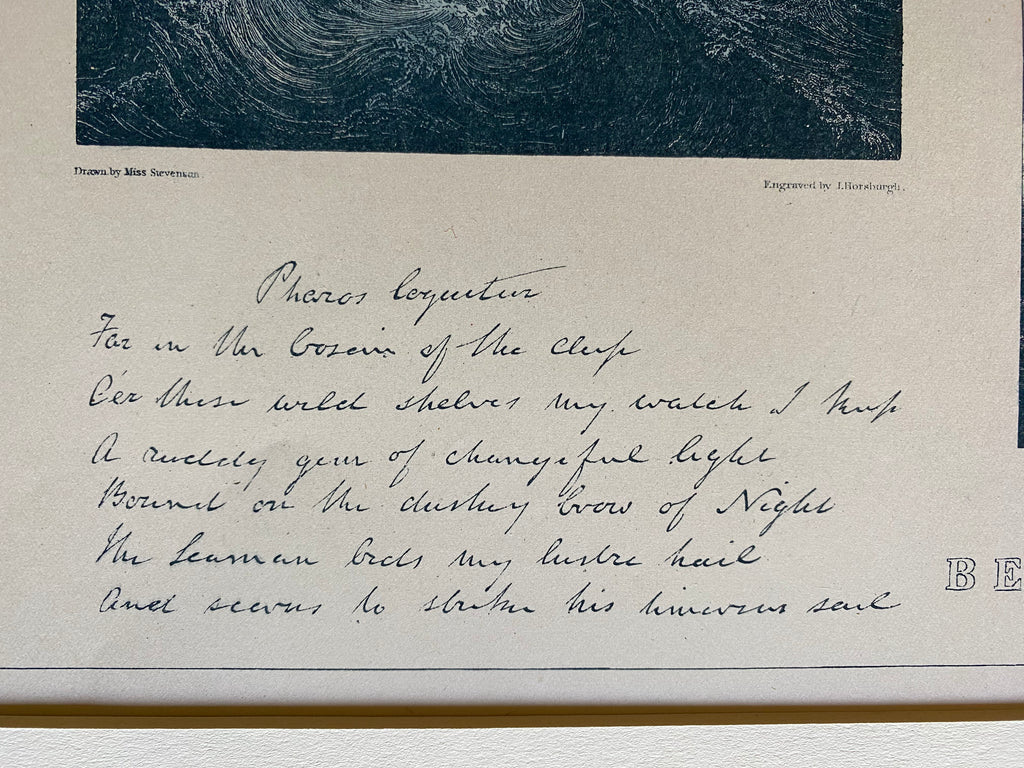 Drawn by Miss Stevenson.
Engraved by J. Horsburgh.
Pharos loquitur
Far in the bosom of the deep
O'er these wild shelves my watch I keep
A ruddy gem of changeful light
Bound on the dusky brow of Night
The Seaman bids my lustre hail
And scorns to strike his timorous sail
BE